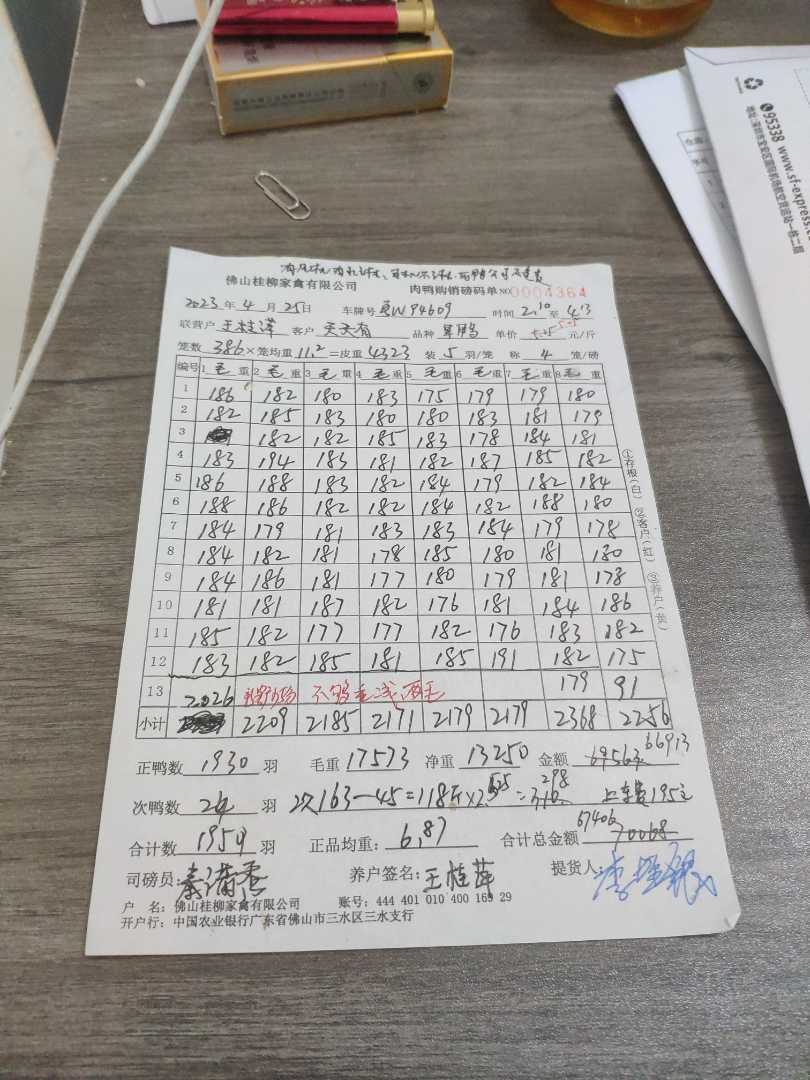 95338 www.sf-express.c
佛山桂柳家禽有限公司 肉鸭购销磅码单 NO 0004364
2023年4月25日 车牌号 W94609 时间 2.10 至 4.13
联营户 王桂萍 客户 天天有 品种 单价 5.05 元/斤
笼数 386 × 笼均重 11.2 = 皮重 4323 装 5 羽/笼 称 4 笼/磅
编号 1 毛 重 2 毛 重 3 毛 重 4 毛 重 5 毛 重 6 毛 重 7 毛 重 8 毛 重
1 186 182 180 183 175 179 179 180
2 182 185 183 180 180 183 181 179
3 182 182 185 183 178 184 181
4 183 194 183 181 182 187 185 182
5 186 188 183 182 184 179 182 184
6 188 186 182 182 184 182 188 180
7 184 179 181 183 183 184 179 178
8 184 182 181 178 185 180 181 180
9 184 186 181 177 180 179 181 178
10 181 181 187 182 176 181 184 186
11 185 182 177 177 182 176 183 182
12 183 182 185 181 185 191 182 175
13 2026 不够 179 91
小计 2209 2185 2171 2179 2179 2368 2256
①存根(白) ②客户(红) ③养户(黄)
正鸭数 1930 羽 毛重 17573 净重 13250 金额 69563 66913
次鸭数 24 羽 次163-45=118斤×2.525=298 上车费195元
合计数 1954 羽 正品均重: 6.87 合计总金额 67406 70068
司磅员: 养户签名: 王桂萍 提货人:
户 名: 佛山桂柳家禽有限公司 账号: 444 401 010 400 163 29
开户行: 中国农业银行广东省佛山市三水区三水支行